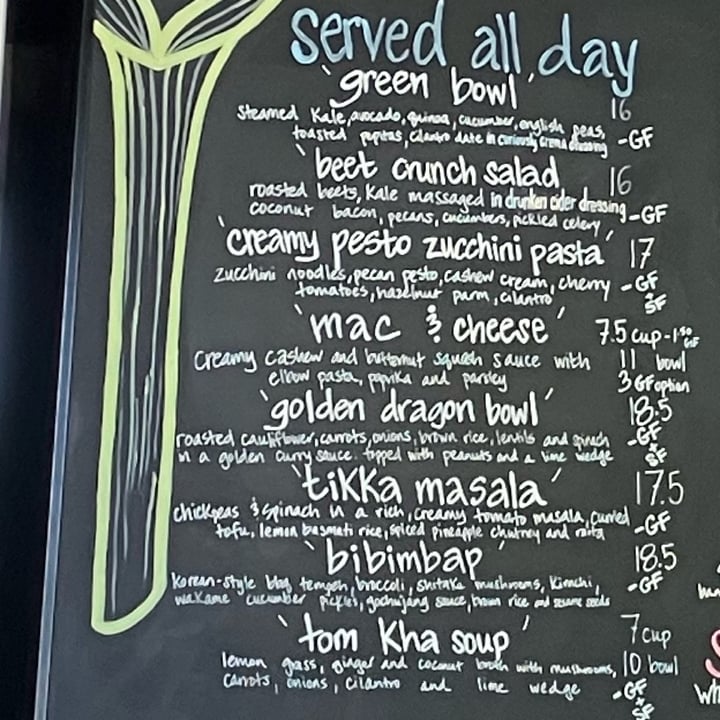 served all day
'green bowl' 16
steamed kale, avocado, quinoa, cucumber, english peas,
toasted pepitas, cilantro date in curiously crema dressing -GF
'beet crunch salad 16
roasted beets, kale massaged in drunken cider dressing
coconut bacon, pecans, cucumbers, pickled celery -GF
'creamy pesto zucchini pasta' 17
zucchini noodles, pecan pesto, cashew cream, cherry -GF
tomatoes, hazelnut parm, cilantro & SF
'mac & cheese' 7.5 cup -1.50 GF
creamy cashew and butternut squash sauce with 11 bowl
elbow pasta, paprika and parsley 3 GF option
'golden dragon bowl' 18.5
roasted cauliflower, carrots, onions, brown rice, lentils and spinach -GF
in a golden curry sauce. topped with peanuts and a lime wedge & SF
'tikka masala' 17.5
chickpeas & spinach in a rich, creamy tomato masala, curried
tofu, lemon basmati rice, spiced pineapple chutney and raita -GF
'bibimbap' 18.5
korean-style bbq tempeh, broccoli, shitake mushrooms, kimchi, -GF
wakame cucumber pickles, gochujang sauce, brown rice and sesame seeds
'tom kha soup' 7 cup
lemon grass, ginger and coconut broth with mushrooms, 10 bowl
carrots, onions, cilantro and lime wedge -GF
& SF